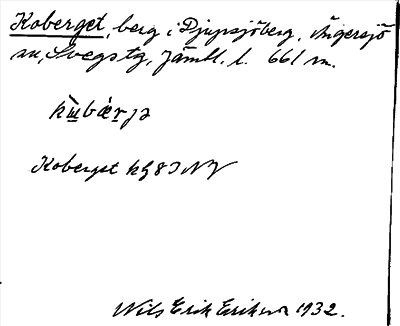 Koberget, berg i Djupsjöberg, Ängersjö
sn, Svegs tg, Jämtl. l. 661 m.
Koberget
Nils Erik Eriksson 1932.